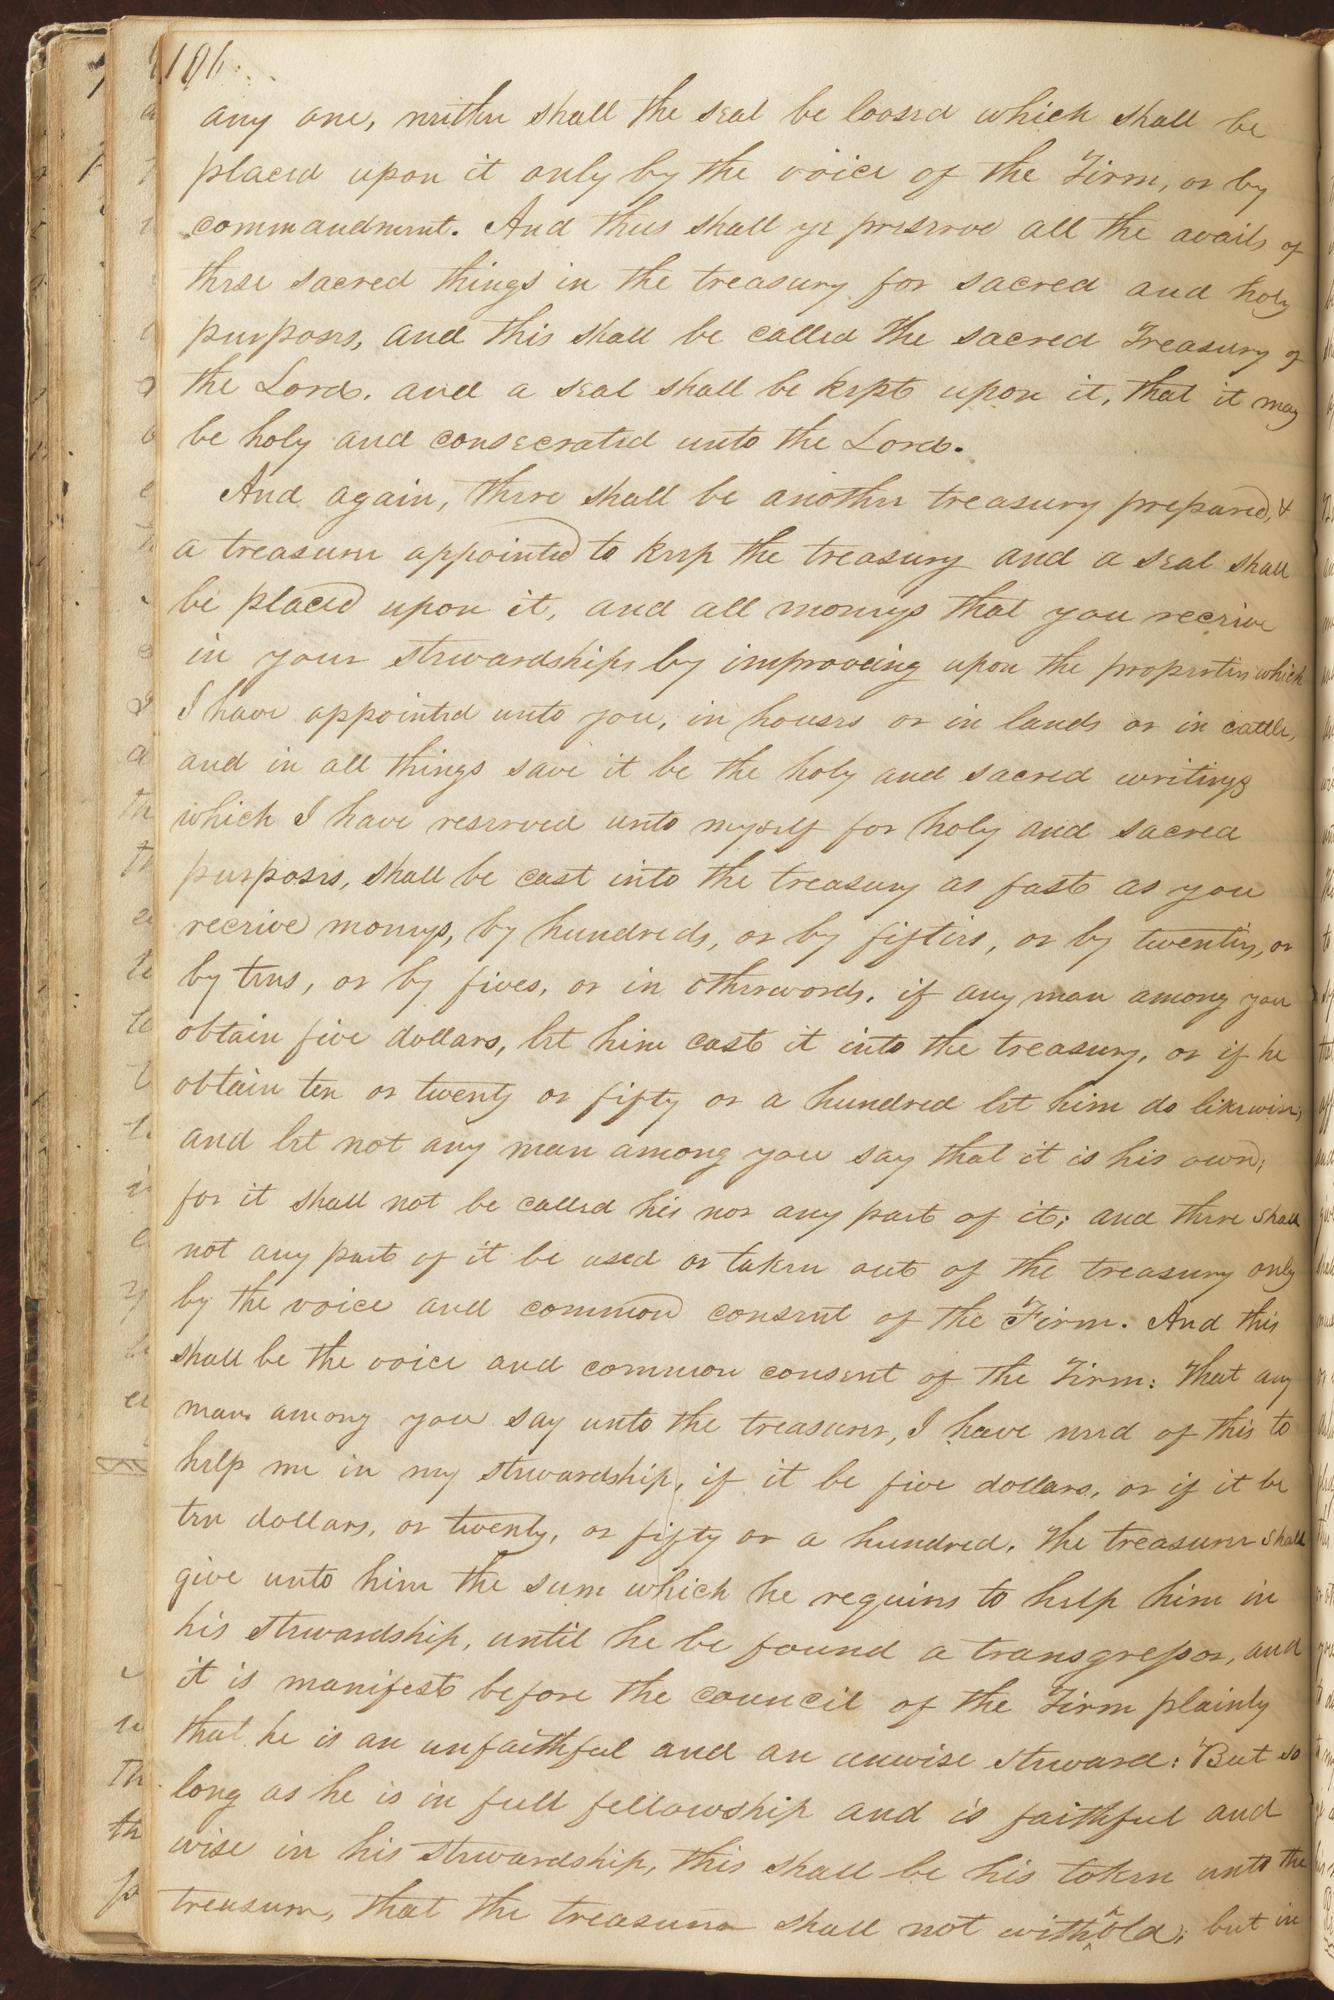 106
any one, neither shall the seal be loosed which shall be
placed upon it only by the voice of the Firm, or by
commandment. And thus shall ye preserve all the avails of
these sacred things in the treasury for sacred and holy
purposes, and this shall be called the sacred Treasury of
the Lord. and a seal shall be kept upon it, that it may
be holy and consecrated unto the Lord.
And again, there shall be another treasury prepared, &
a treasurer appointed to keep the treasury and a seal shall
be placed upon it, and all moneys that you receive
in your stewardships by improveing upon the properties which
I have appointed unto you, in houses or in lands or in cattle,
and in all things save it be the holy and sacred writings
which I have reserved unto myself for holy and sacred
purposes, shall be cast into the treasury as fast as you
receive moneys, by hundreds, or by fifties, or by twenties, or
by tens, or by fives, or in otherwords, if any man among you
obtain five dollars, let him cast it into the treasury, or if he
obtain ten or twenty or fifty or a hundred let him do likewise;
and let not any man among you say that it is his own;
for it shall not be called his nor any part of it; and there shall
not any part of it be used or taken out of the treasury only
by the voice and common consent of the Firm. And this
shall be the voice and common consent of the Firm: That any
man among you say unto the treasurer, I have need of this to
help me in my stewardship, if it be five dollars, or if it be
ten dollars, or twenty, or fifty or a hundred, The treasurer shall
give unto him the sum which he requires to help him in
his stewardship, until he be found a transgressor, and
it is manifest before the council of the Firm plainly
that he is an unfaithful and an unwise steward: But so
long as he is in full fellowship and is faithful and
wise in his stewardship, this shall be his token unto the
treasurer, that the treasurer shall not withhold; but in